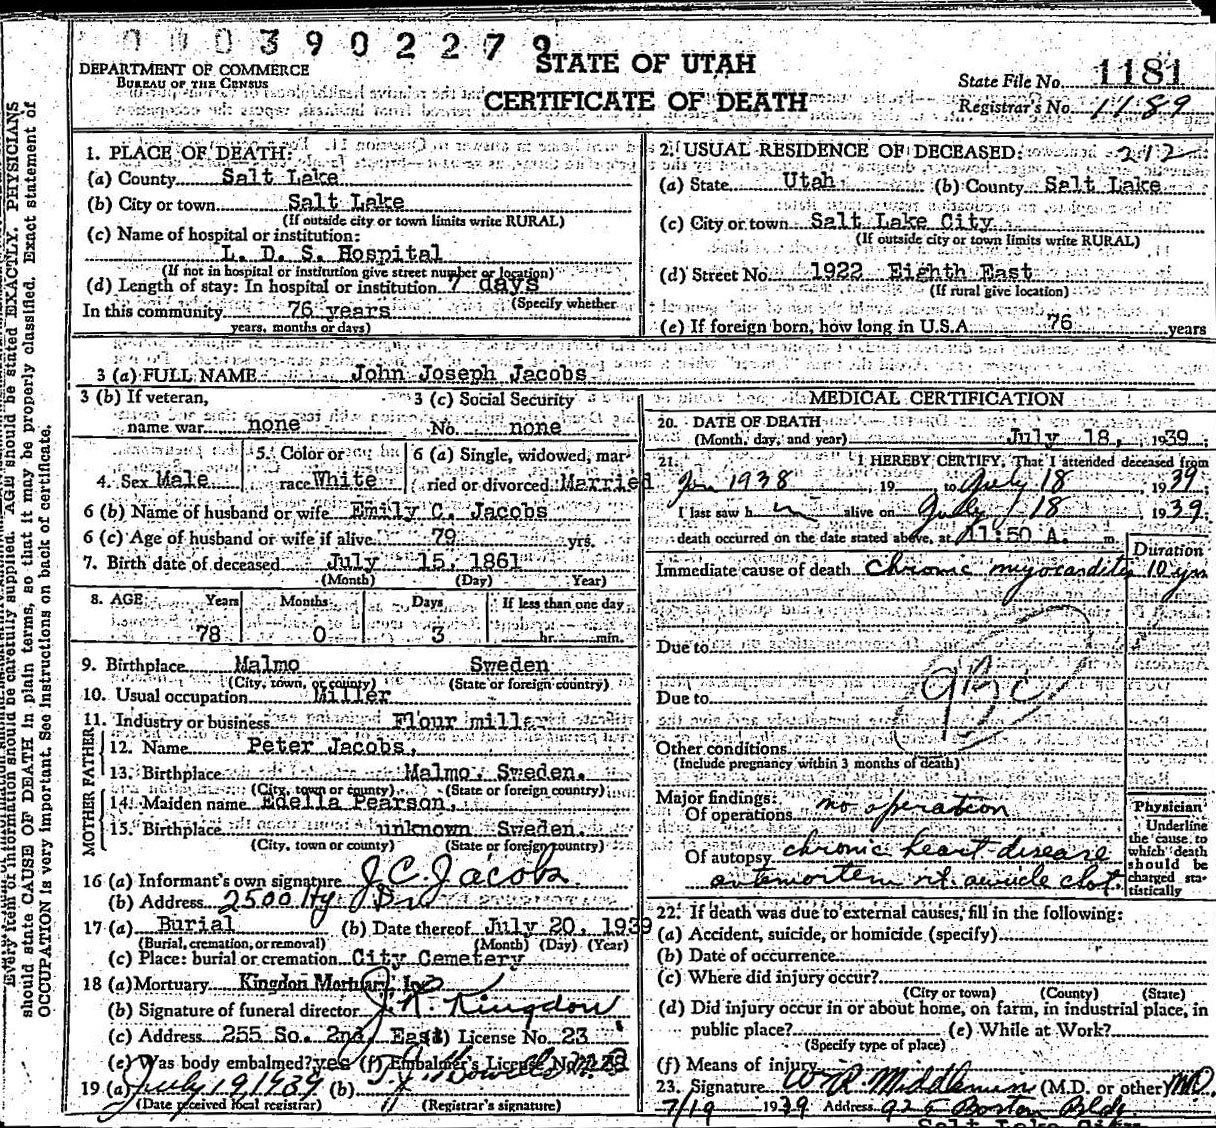 0003902279
STATE OF UTAH
DEPARTMENT OF COMMERCE
BUREAU OF THE CENSUS
CERTIFICATE OF DEATH
State File No. 1181
Registrar's No. 1189
1. PLACE OF DEATH:
(a) County Salt Lake
(b) City or town Salt Lake
(If outside city or town limits write RURAL)
(c) Name of hospital or institution:
L. D. S. Hospital
(If not in hospital or institution give street number or location)
(d) Length of stay: In hospital or institution 7 days
(Specify whether
In this community 76 years
years, months or days)
2. USUAL RESIDENCE OF DECEASED: 212
(a) State Utah (b) County Salt Lake
(c) City or town Salt Lake City
(If outside city or town limits write RURAL)
(d) Street No. 1922 Eighth East
(If rural give location)
(e) If foreign born, how long in U.S.A. 76 years
3 (a) FULL NAME John Joseph Jacobs
3 (b) If veteran, 3 (c) Social Security
name war none No. none
4. Sex Male 5. Color or race White 6 (a) Single, widowed, married or divorced Married
6 (b) Name of husband or wife Emily C. Jacobs
6 (c) Age of husband or wife if alive 79 yrs.
7. Birth date of deceased July 15, 1861
(Month) (Day) Year)
8. AGE Years Months Days If less than one day
78 0 3 hr. min.
9. Birthplace Malmo Sweden
(City, town, or county) (State or foreign country)
10. Usual occupation Miller
11. Industry or business Flour mills
FATHER
12. Name Peter Jacobs.
13. Birthplace Malmo, Sweden.
(City, town or county) (State or foreign country)
MOTHER
14. Maiden name Edella Pearson,
15. Birthplace unknown Sweden.
(City, town or county) (State or foreign country)
16 (a) Informant's own signature J. C. Jacobs.
(b) Address 2500 Hy Dr
17 (a) Burial (b) Date thereof July 20, 1939
(Burial, cremation, or removal) (Month) (Day) (Year)
(c) Place: burial or cremation City Cemetery
18 (a) Mortuary Kingdon Mortuary Inc
(b) Signature of funeral director J. R. Kingdon
(c) Address 255 So. 2nd East License No. 23
(e) Was body embalmed? yes (f) Embalmer's License No.
19 (a) July 19, 1939 (b)
(Date received local registrar) (Registrar's signature)
MEDICAL CERTIFICATION
20. DATE OF DEATH
(Month, day, and year) July 18, 1939
21. I HEREBY CERTIFY, That I attended deceased from
Jan 1938, 19 to July 18, 1939
I last saw h m alive on July 18, 1939
death occurred on the date stated above, at 11:50 A. m.
Duration
Immediate cause of death chronic myocarditis 10 yrs
Due to
Due to
93c
Other conditions
(Include pregnancy within 3 months of death)
Major findings:
Of operations no operation
Of autopsy chronic heart disease
antemortem rt. auricle clot.
Physician
Underline
the cause to
which death
should be
charged sta-
tistically
22. If death was due to external causes, fill in the following:
(a) Accident, suicide, or homicide (specify)
(b) Date of occurrence
(c) Where did injury occur?
(City or town) (County) (State)
(d) Did injury occur in or about home, on farm, in industrial place, in
public place? (e) While at Work?
(Specify type of place)
(f) Means of injury
23. Signature W R. Middlemiss (M.D. or other) MD.
7/19 1939 Address 925 Boston Bldg.
Salt Lake City
Every item of information should be carefully supplied. AGE should be stated EXACTLY. PHYSICIANS
should state CAUSE OF DEATH in plain terms, so that it may be properly classified. Exact statement of
OCCUPATION is very important. See instructions on back of certificate.